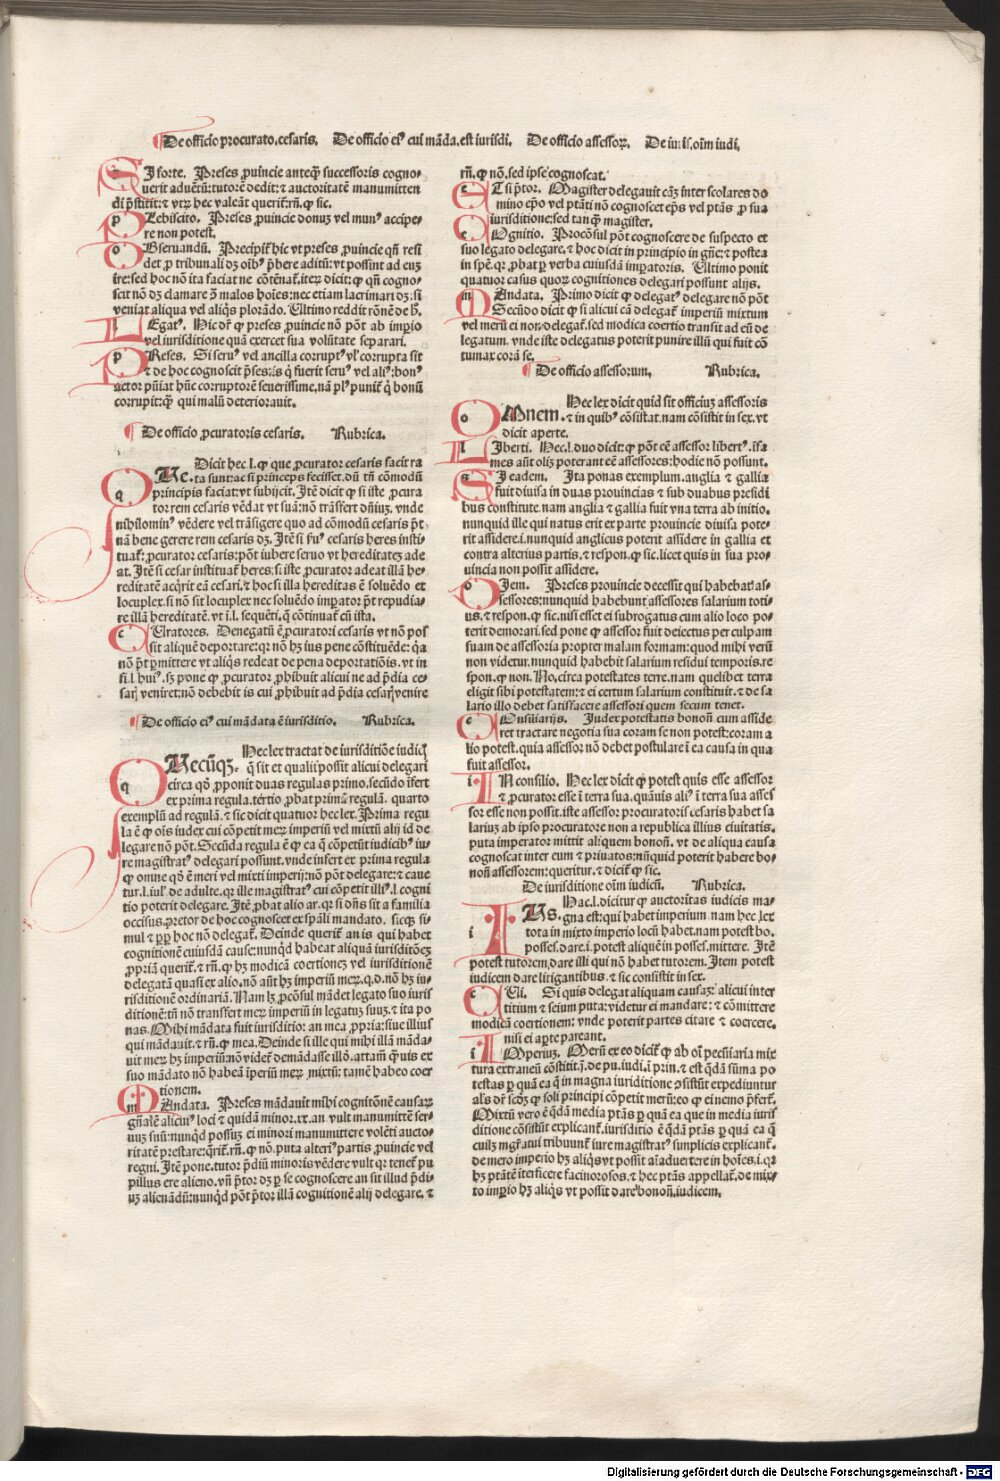 ¶ De officio procurato. cesaris. De officio eiꝰ cui mãda. est iurisdi. De officio assessoꝝ. De iuris. oĩm iudi.
SI forte. Preses ꝓuincie anteq̃ʒ successoris cogno-
uerit aduẽtũ: tutorẽ dedit: ⁊ auctoritatẽ manumitten
di p̃stitit: ⁊ vtꝝ hec valeãt querit̃: rñ. ꝙ sic.
PLebiscito. Preses ꝓuincie donuʒ vel munꝰ accipe-
re non potest.
OBseruandũ. Precipit̃ hic vt preses ꝓuincie qñ resi
det ꝓ tribunali dʒ oĩbꝰ p̃bere aditũ: vt possint ad euʒ
ire: sed hoc nõ ita faciat ne cõtẽnat̃. iteʒ dicit: ꝙ qñ cogno-
scit nõ dʒ clamare ꝯ̃ malos hoĩes: nec etiam lacrimari dʒ: si
veniat aliqua vel aliq̃s plorãdo. Ultimo reddit rõnẽ de h̃.
LEgatꝰ. Hic dr̃ ꝙ preses ꝓuincie nõ põt ab imꝑio
vel iurisditione quã exercet sua volũtate separari.
PReses. Si seruꝰ vel ancilla corruptꝰ vĩ corrupta sit
⁊ de hoc cognoscit p̃ses: is q̃ fuerit seruꝰ vel aliꝰ: bonꝰ
actor pũiat hũc corruptorẽ seuerissime, nã plꝰ punit̃ q̃ bonũ
corrupit: q̃ʒ qui malũ deteriorauit.
¶ De officio ꝓcuratoris cesaris. Rubrica.
Dicit hec l. ꝙ que ꝓcurator cesaris facit ra
QUe. ta sunt: ac si princeps fecisset. dũ tñ cõmodũ
principis faciat: vt subijcit. Itẽ dicit ꝙ si iste ꝓcura
tor rem cesaris vẽdat vt suã: nõ trãsfert dñiuʒ. vnde
nihilominꝰ vẽdere vel trãsigere quo ad cõmodũ cesaris p̃t
nã bene gerere rem cesaris dʒ. Itẽ si fuꝰ cesaris heres insti-
tuat̃: ꝓcurator cesaris: põt iubere seruo vt hereditateʒ ade
at. Itẽ si cesar instituat̃ heres: si iste ꝓcurator adeat illã he-
reditatẽ acq̃rit eã cesari. ⁊ hoc si illa hereditas ẽ soluẽdo et
locuplex. si nõ sit locuplex nec soluẽdo imꝑator p̃t repudia-
re illã hereditatẽ. vt i. l. sequẽti. q̃ cõtinuat̃ cũ ista.
CUratores. Denegatũ ẽ ꝓcuratori cesaris vt nõ pos
sit aliquẽ deportare: qr nõ hʒ ius pene cõstituẽde: q̃a
nõ p̃t ꝑmittere vt aliq̃s redeat de pena deportatiõis. vt in
si. l. huiꝰ. sʒ pone ꝙ ꝓcurator ꝓhibuit alicui ne ad p̃dia ce-
sarꝭ veniret: nõ debebit is cui ꝓhibuit ad p̃dia cesarꝭ venire
¶ De officio eiꝰ cui mãdata ẽ iurisditio. Rubrica.
Hec lex tractat de iurisditiõe iudicꝭ
QUecũqʒ. q̃ sit et qualiť possit alicui delegari
circa qõ ꝓponit duas regulas primo. secũdo ĩfert
ex prima regula. tertio ꝓbat primã regulã. quarto
exemplũ ad regulã. ⁊ sic dicit quatuor hec lex. Prima regu
la ẽ ꝙ oĩs iudex cui cõpetit meꝝ imperiũ vel mixtũ alij id de
legare nõ põt. Secũda regula ẽ ꝙ ea q̃ cõpetũt iudicibꝰ iu-
re magistratꝰ delegari possunt. vnde infert ex prima regula
ꝙ omne qõ ẽ meri vel mixti imperij: nõ põt delegare: ⁊ caue
tur. l. iul. de adulte. qr ille magistratꝰ cui cõpetit illiꝰ. l. cogni
tio poterit delegare. Itẽ ꝓbat alio ar. qr si dñs sit a familia
occisus, pretor de hoc cognoscet ex sp̃ali mandato. sicqʒ si-
mul ⁊ ꝑꝑ hoc nõ delegat̃. Deinde querit̃ an is qui habet
cognitionẽ cuiusdã cause: nunqd habeat aliquã iurisditõeʒ
ꝓpriã querit̃. ⁊ rñ. ꝙ hʒ modicã coertioneʒ vel iurisditionẽ
delegatã quasi ex alio. nõ aũt hʒ imperiũ meꝝ. q. d. nõ hʒ iu-
risditionẽ ordinariã. Nam lʒ ꝓcõsul mãdet legato suo iuris
ditionẽ: tñ nõ transfert meꝝ imperiũ in legatuʒ suuʒ. ⁊ ita po
nas. Mihi mãdata fuit iurisditio: an mea ꝓpria: siue illius
qui mãdauit. ⁊ rñ. ꝙ mea. Deinde si ille qui mihi illã mãda-
uit meꝝ hʒ imperiũ: nõ videt̃ demãdasse illõ. attamẽ q̃uis ex
suo mãdato nõ habeã ĩperiũ meꝝ mixtũ: tamẽ habeo coer
tionem.
MAndata. Preses mãdauit mihi cognitõnẽ causaꝝ
gñalẽ alicuiꝰ loci ⁊ quidã minor. xx. an vult manumittẽ ser-
uuʒ suũ: nunqd possuʒ ei minori manumittere volẽti aucto-
ritatẽ prestare: q̃rit̃. rñ. ꝙ nõ. puta alteriꝰ partis ꝓuincie vel
regni. Itẽ pone. tutor p̃diũ minoris vẽdere vult qr tenet̃ pu
pillus ere alieno. vñ p̃tor dʒ ꝑ se cognoscere an sit illud p̃di-
uʒ alienãdũ: nunqd põt p̃tor illã cognitionẽ alij delegare. ⁊
rñ. ꝙ nõ. sed ipse cognoscat.
ET si p̃tor. Magister delegauit cãʒ inter scolares do
mino ep̃o vel ptãti nõ cognoscet ep̃s vel ptãs ꝓ sua
iurisditione: sed tanq̃ magister.
COgnitio. Procõsul põt cognoscere de suspecto et
suo legato delegare. ⁊ hoc dicit in principio in gñe: ⁊ postea
in spẽ. qr ꝓbat ꝑ verba cuiusdã imperatoris. Ultimo ponit
quatuor casus quoꝝ cognitiones delegari possunt alijs.
MAndata. Primo dicit ꝙ delegatꝰ delegare nõ põt
Secũdo dicit ꝙ si alicui cã delegat̃ imperiũ mixtum
vel merũ ei non delegat̃. sed modica coertio transit ad eũ de
legatum. vnde iste delegatus poterit punire illũ qui fuit cõ
tumax corã se.
¶ De officio assessorum. Rubrica.
Hec lex dicit quid sit officiuʒ assessoris
OMnem. ⁊ in quibꝰ cõsistat. nam cõsistit in sex. vt
dicit aperte.
LIberti. Hec. l. duo dicit: ꝙ põt eẽ assessor libertꝰ. ifa
mes aũt oliʒ poterant eẽ assessores: hodie nõ possunt.
SI eadem. Ita ponas exemplum. anglia ⁊ gallia
fuit diuisa in duas prouincias ⁊ sub duabus presidi
bus constitute. nam anglia ⁊ gallia fuit vna terra ab initio.
nunquid ille qui natus erit ex parte prouincie diuisa pote-
rit assidere. i. nunquid anglicus poterit assidere in gallia et
contra alterius partis. ⁊ respon. ꝙ sic. licet quis in sua pro-
uincia non possit assidere.
DIem. Preses prouincie decessit qui habebat as-
sessores: nunquid habebunt assessores salarium toti-
us. ⁊ respon. ꝙ sic. nisi esset ei subrogatus cum alio loco po-
terit demorari. sed pone ꝙ assessor fuit deiectus per culpam
suam de assessoria propter malam formam: quod mihi verũ
non videtur. nunquid habebit salarium residui temporis. re
spon. ꝙ non. No. circa potestates terre. nam quelibet terra
eligit sibi potestatem: ⁊ ei certum salarium constituit. ⁊ de sa
lario illo debet satisfacere assessori quem secum tenet.
COnsiliarijs. Iudex potestatis bonoñ. cum asside
ret tractare negotia sua coram se non potest: coram a
lio potest. quia assessor nõ debet postulare ĩ ea causa in qua
fuit assessor.
IN consilio. Hec lex dicit ꝙ potest quis esse assessor
⁊ ꝓcurator esse ĩ terra sua. quãuis aliꝰ ĩ terra sua asses
sor esse non possit. iste assessor procuratoris cesaris habet sa
lariuʒ ab ipso procuratore non a republica illius ciuitatis.
puta imperator mittit aliquem bonoñ. vt de aliqua causa
cognoscat inter eum ⁊ priuatos: nũquid poterit habere bo-
noñ assessorem: queritur. ⁊ dicit̃ ꝙ sic.
De iurisditione oĩm iudicũ. Rubrica.
Hac. l. dicitur ꝙ auctoritas iudicis ma-
IUs. gna est: qui habet imperium. nam hec lex
tota in mixto imperio locũ habet. nam potest bo.
posses. dare. i. potest aliquẽ in posses. mittere. Itẽ
potest tutorem dare illi qui nõ habet tutorem. Item potest
iudicem dare litigantibus. ⁊ sic consistit in sex.
CUi. Si quis delegat aliquam causaʒ: alicui inter
titium ⁊ seium puta: videtur ei mandare: ⁊ cõmittere
modicã coertionem: vnde poterit partes citare ⁊ coercere.
nisi ei aꝑte pareant.
IMperiuʒ. Merũ ex eo dicit̃ ꝙ ab oĩ pecũiaria mix
tura extraneũ cõstitit. j. de pu. iudi. ĩ prin. ⁊ est q̃dã sũma po
testas ꝑ quã ea q̃ in magna iuriditione ꝯsistũt expediuntur
als dr̃ scdʒ ꝙ soli principi cõpetit merũ: eo ꝙ ei nemo p̃fert̃.
Mixtũ vero ẽ q̃dã media ptãs ꝑ quã ea que in media iuris
ditione cõsistũt explicant̃. iurisditio ẽ q̃dã ptãs ꝑ quã ea q̃
cuilʒ mgr̃atui tribuunt̃ iure magistratꝰ simplicis explicant̃.
de mero imperio hʒ aliq̃s vt possit aĩaduertere in hoĩes. i. qr
hʒ ptãtẽ ĩterficere facinorosos. ⁊ hec ptãs appellat̃. de mix-
to imꝑio hʒ aliq̃s vt possit dare bonoñ. iudicem.
Digitalisierung gefördert durch die Deutsche Forschungsgemeinschaft - DFG